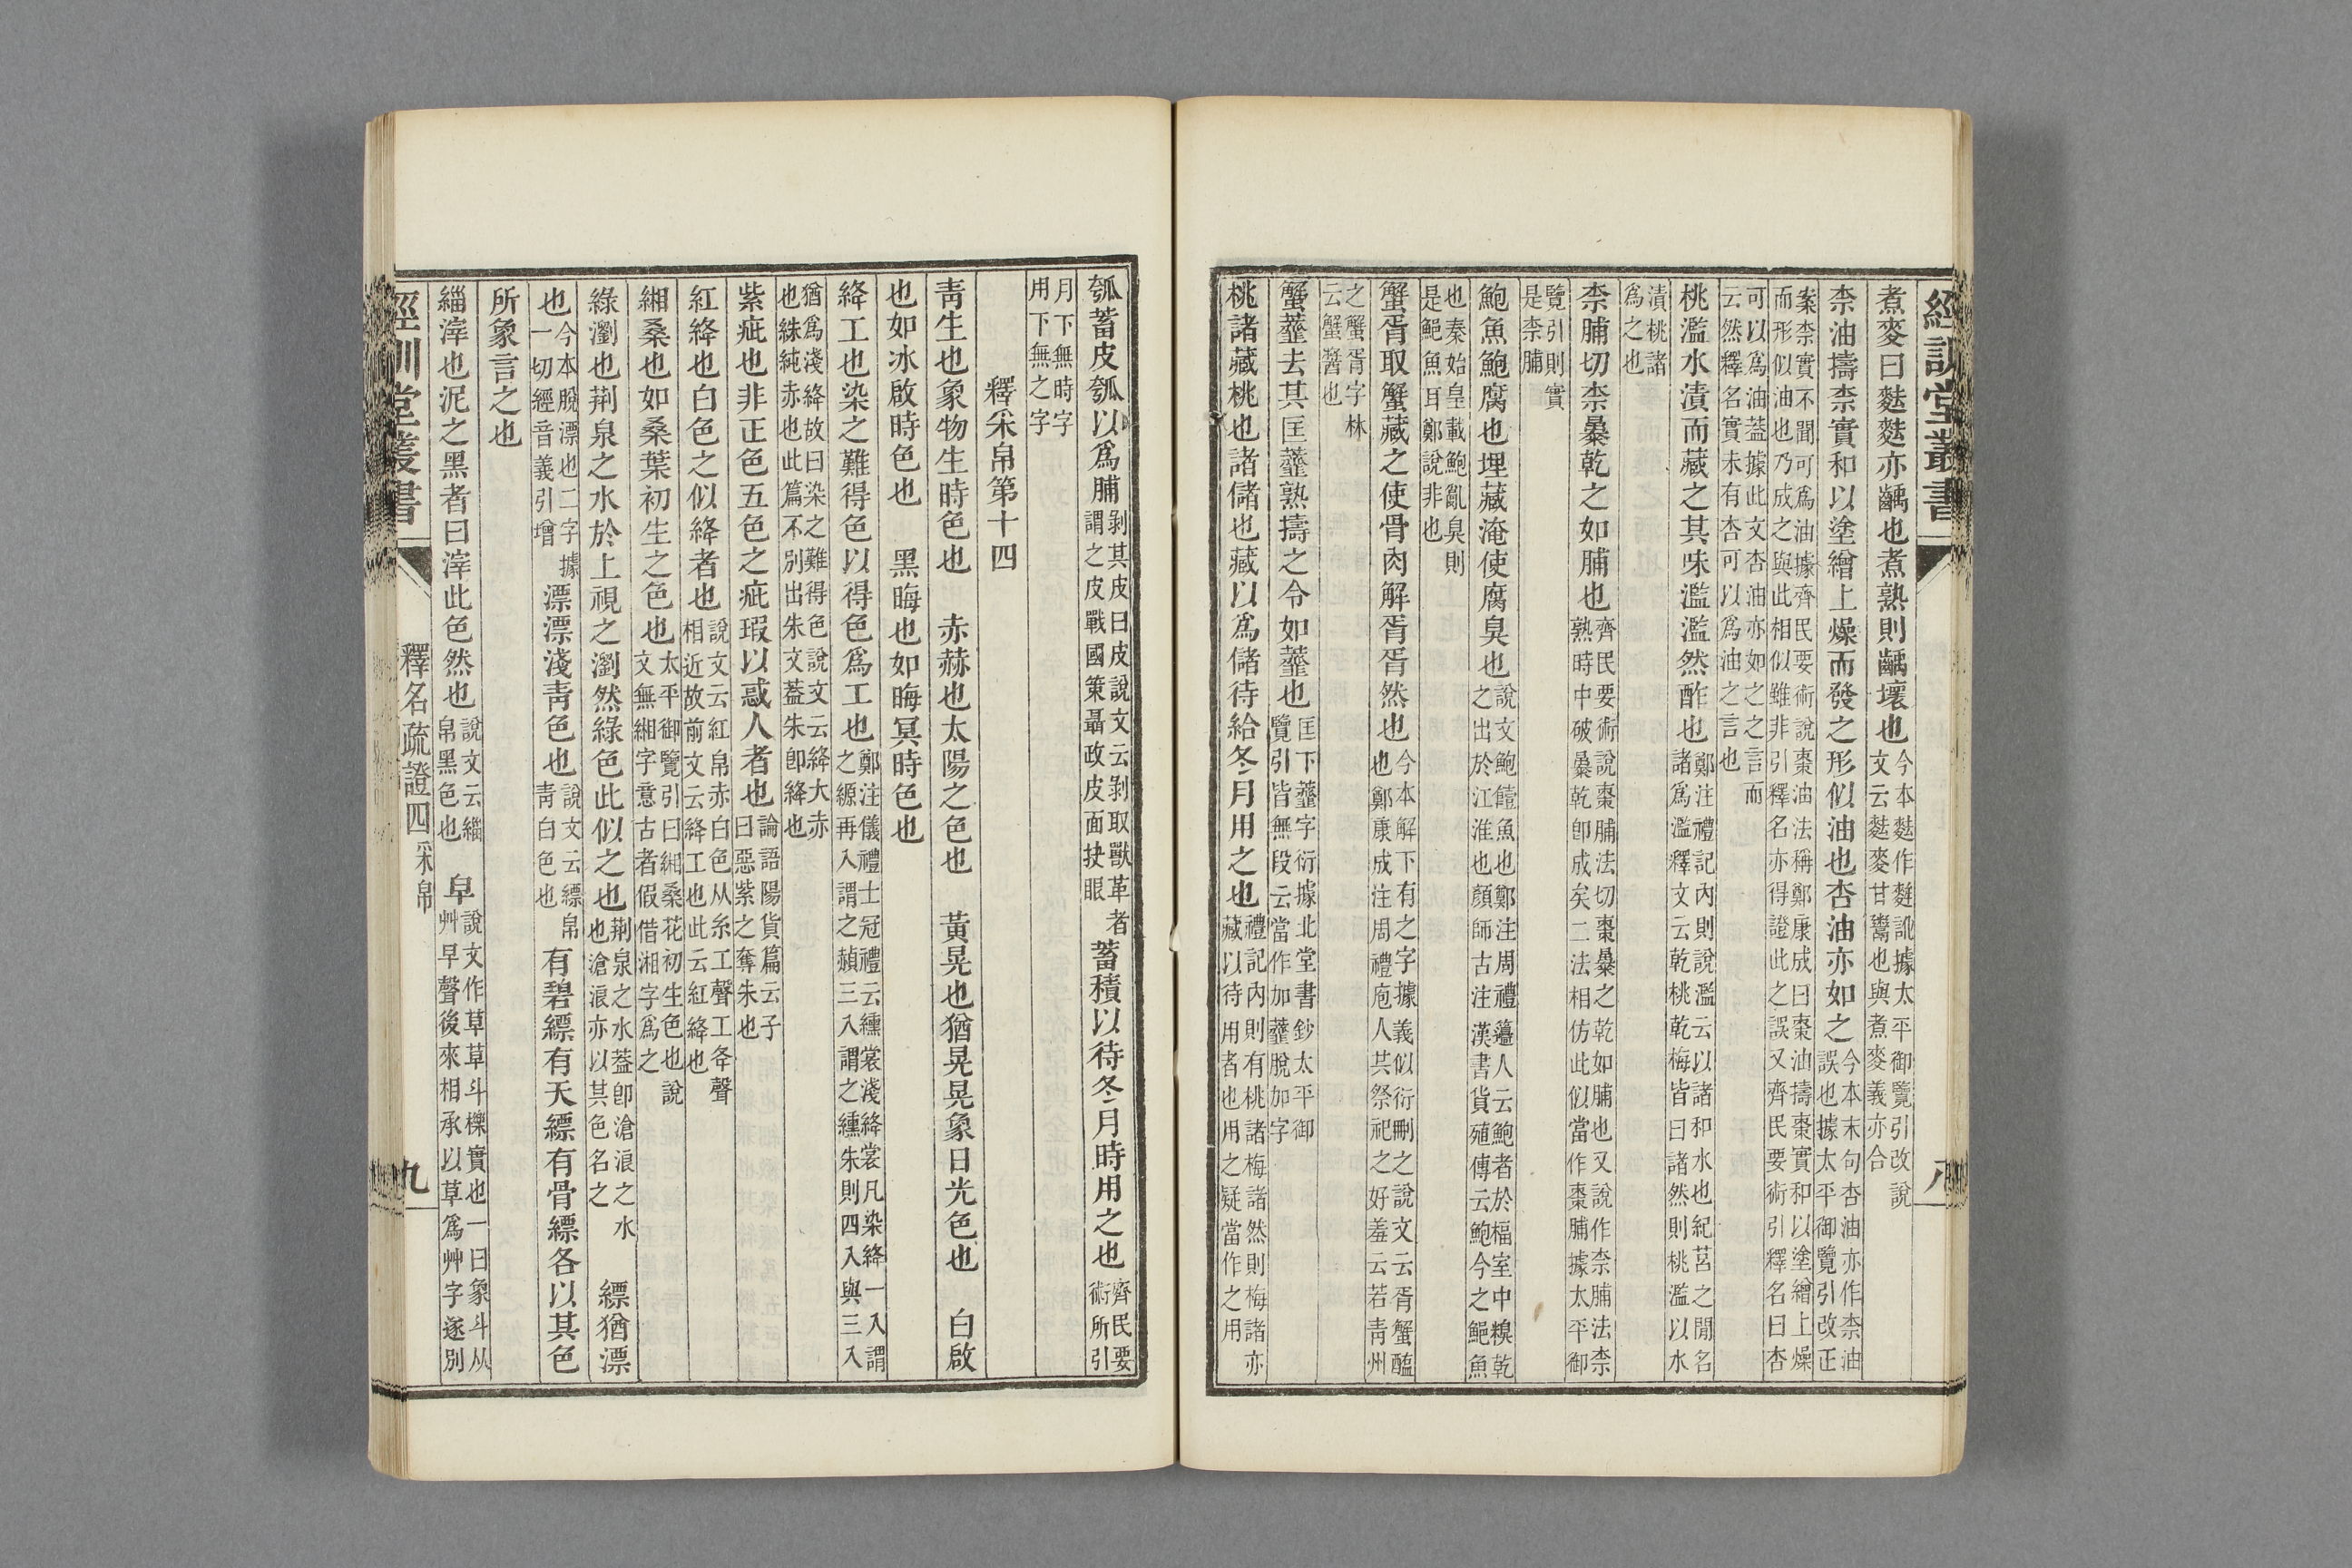 經訓堂叢書
八
煮麥曰麩麩亦齲也煮熟則齲壞也今本麩作麷訛據太平御覽引改說
文云麩麥甘鬻也與煮麥義亦合
柰油擣柰實和以塗繒上燥而發之形似油也杏油亦如之今本末句杏油亦作柰油
誤也據太平御覽引改正
案柰實不聞可爲油據齊民要術說棗油法稱鄭康成曰棗油擣棗實和以塗繒上燥
而形似油也乃成之與此相似雖非引釋名亦得證此之誤又齊民要術引釋名曰杏
可以爲油葢據此文杏油亦如之之言而
云然釋名實未有杏可以爲油之言也
桃濫水漬而藏之其味濫濫然酢也鄭注禮記內則說濫云以諸和水也紀莒之閒名
諸爲濫釋文云乾桃乾梅皆曰諸然則桃濫以水
漬桃諸
爲之也
柰脯切柰暴乾之如脯也齊民要術說棗脯法切棗暴之乾如脯也又說作柰脯法柰
熟時中破暴乾卽成矣二法相仿此似當作棗脯據太平御
覽引則實
是柰脯
鮑魚鮑腐也埋藏淹使腐臭也說文鮑饐魚也鄭注周禮籩人云鮑者於楅室中糗乾
之出於江淮也顏師古注漢書貨殖傳云鮑今之鮠魚
也秦始皇載鮑亂臭則
是鮠魚耳鄭說非也
蟹胥取蟹藏之使骨肉解胥胥然也今本解下有之字據義似衍刪之說文云胥蟹醢
也鄭康成注周禮庖人共祭祀之好羞云若青州
之蟹胥字林
云蟹醬也
蟹虀去其匡虀熟擣之令如虀也匡下虀字衍據北堂書鈔太平御
覽引皆無段云當作加虀脫加字
桃諸藏桃也諸儲也藏以爲儲待給冬月用之也禮記內則有桃諸梅諸然則梅諸亦
藏以待用者也用之疑當作之用
瓠蓄皮瓠以爲脯剥其皮曰皮說文云剥取獸革者
謂之皮戰國策聶政皮面抉眼蓄積以待冬月時用之也齊民要
術所引
月下無時字
用下無之字
釋采帛第十四
青生也象物生時色也　赤赫也太陽之色也　黃晃也猶晃晃象日光色也　白啟
也如冰啟時色也　黑晦也如晦冥時色也
絳工也染之難得色以得色爲工也鄭注儀禮士冠禮云纁裳淺絳裳凡染絳一入謂
之縓再入謂之赬三入謂之纁朱則四入與三入
猶爲淺絳故曰染之難得色說文云絳大赤
也絑純赤也此篇不別出朱文葢朱卽絳也
紫疵也非正色五色之疵瑕以惑人者也論語陽貨篇云子
曰惡紫之奪朱也
紅絳也白色之似絳者也說文云紅帛赤白色从糸工聲工夅聲
相近故前文云絳工也此云紅絳也
緗桑也如桑葉初生之色也太平御覽引曰緗桑花初生色也說
文無緗字意古者假借湘字爲之
綠瀏也荆泉之水於上視之瀏然綠色此似之也荆泉之水葢卽滄浪之水
也滄浪亦以其色名之　縹猶漂
也今本脫漂也二字據
一切經音義引增漂漂淺青色也說文云縹帛
青白色也有碧縹有天縹有骨縹各以其色
所象言之也
緇滓也泥之黑者曰滓此色然也說文云緇
帛黑色也　皁說文作草草斗櫟實也一曰象斗从
艸早聲後來相承以草爲艸字遂別
經訓堂叢書
釋名疏證四采帛
九